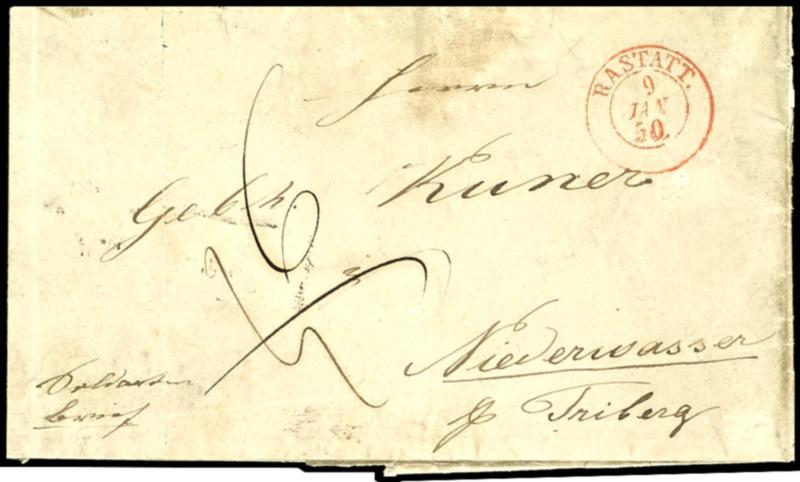 RASTATT.
9
JAN
50
Herrn
Gebh. Kuner
Niederwasser
p Triberg
Soldaten
brief